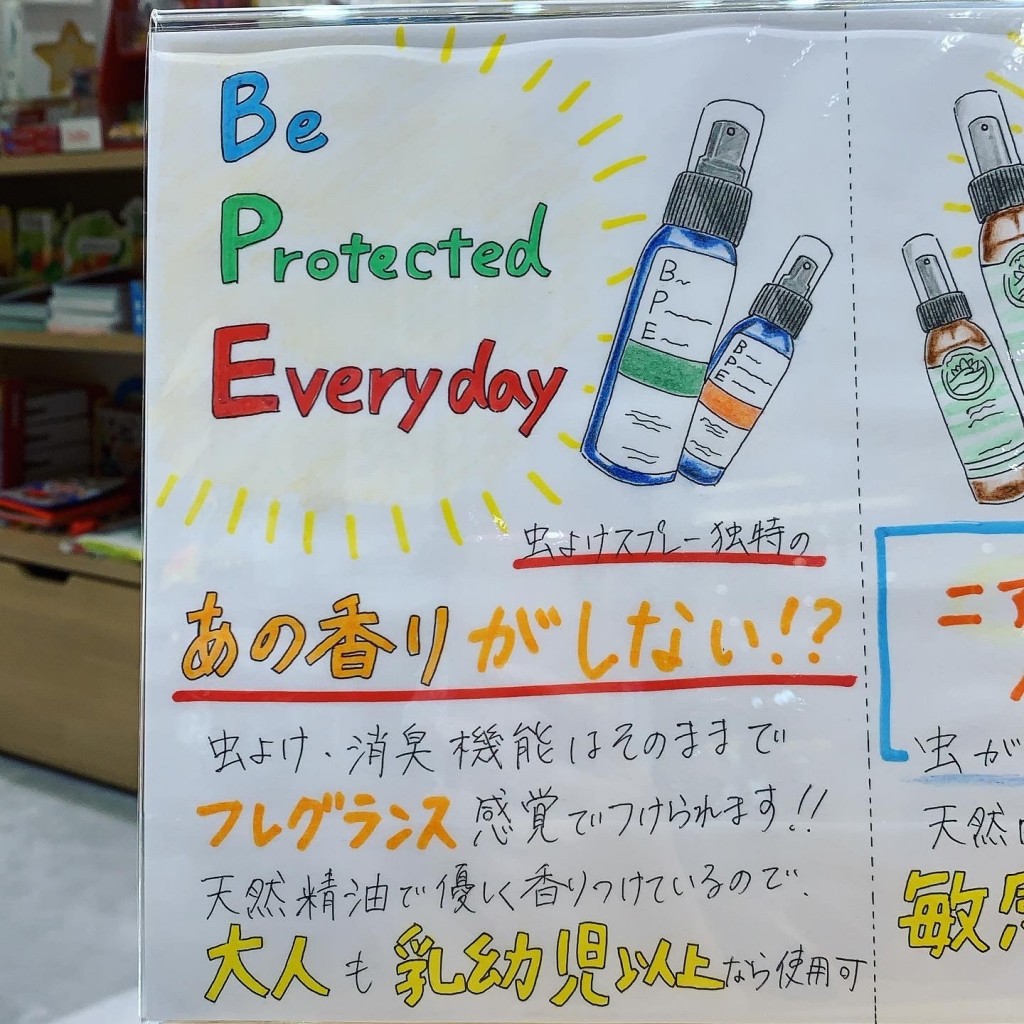 Be
Protected
Everyday
B
P
E
B
P
E
虫よけスプレー独特の
あの香りがしない!?
虫よけ・消臭機能はそのままで
フレグランス感覚でつけられます!!
天然精油で優しく香りつけているので、
大人も乳幼児以上なら使用可
ニア
虫が
天然
敏感